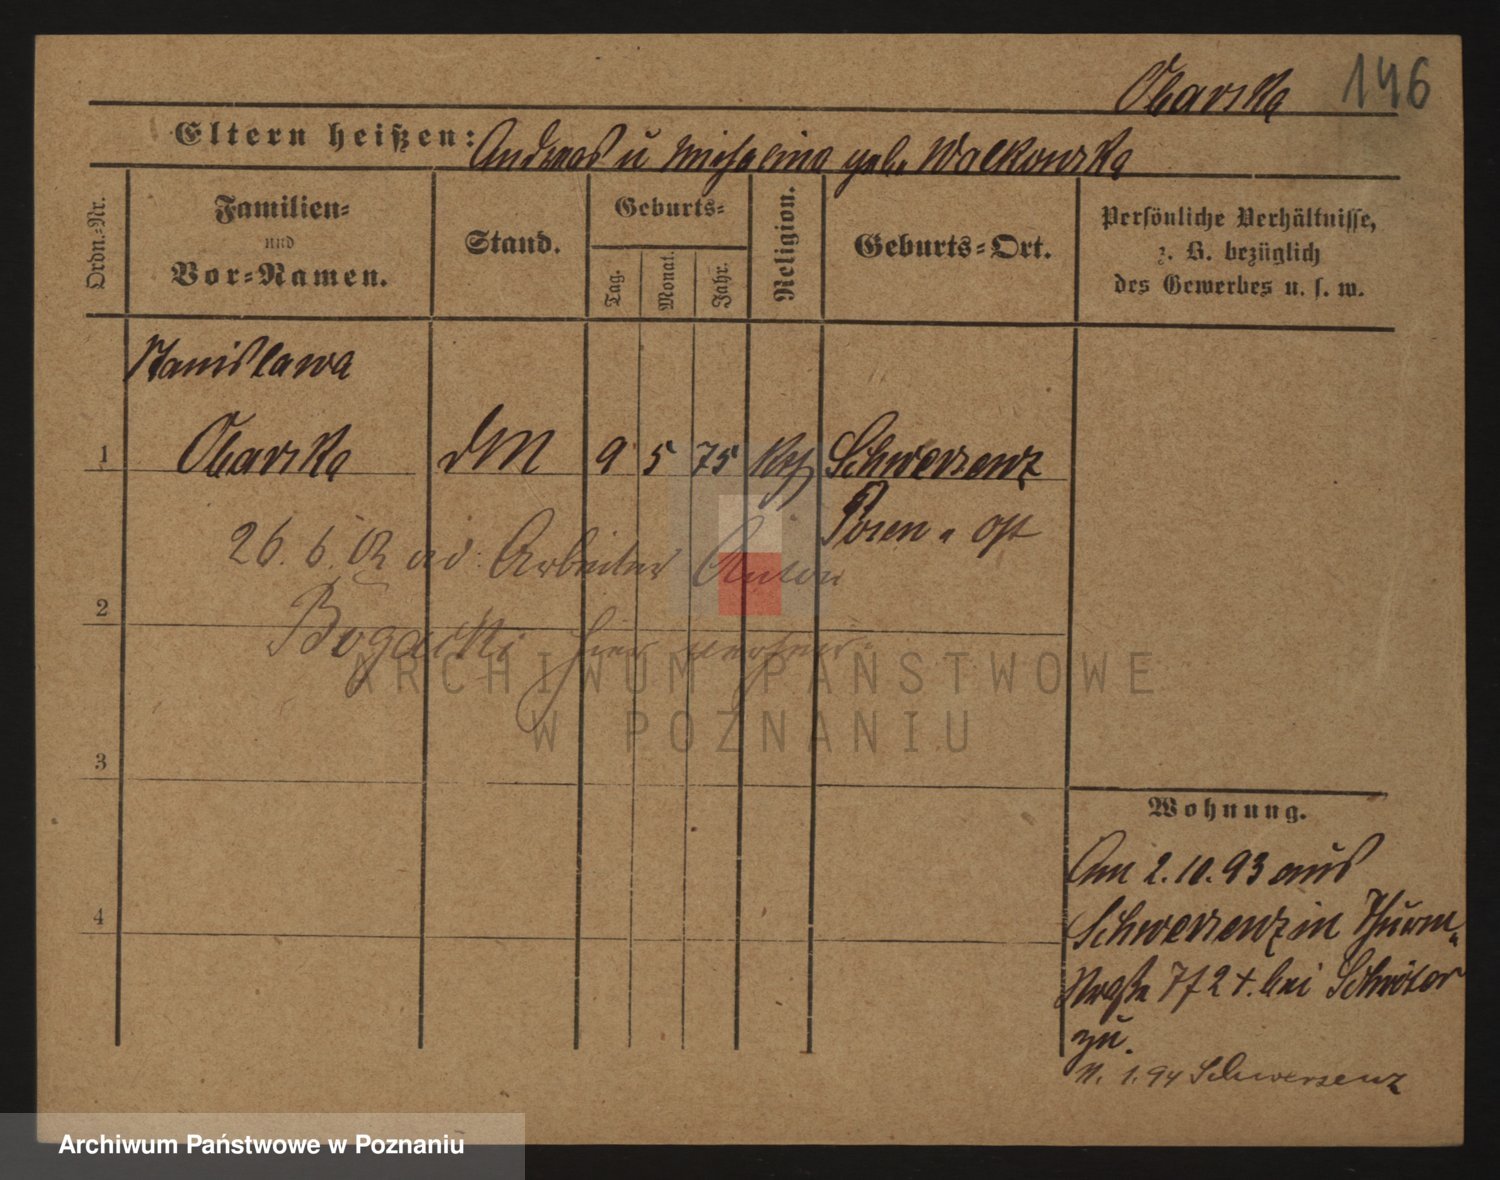 Obarska 146
Eltern heißen: Andreas u Michalina geb. Walkowska
Ordn.-Nr.
Familien-
und
Vor-Namen.
Stand.
Geburts-
Tag.
Monat.
Jahr.
Religion.
Geburts-Ort.
Persönliche Verhältnisse,
z. B. bezüglich
des Gewerbes u. s. w.
Stanislawa
1 Obarska DM 9 5 75 kth Schwersenz
Posen - Ost
26. 6. 02 ad. Arbeiter Anton
2
Bogacki hier verheir.
ARCHIWUM PAŃSTWOWE
W POZNANIU
3
4
Wohnung.
Am 2.10.93 aus
Schwersenz in Thurm-
straße 7 bei Schröter
zu.
11. 1. 94 Schwersenz
Archiwum Państwowe w Poznaniu